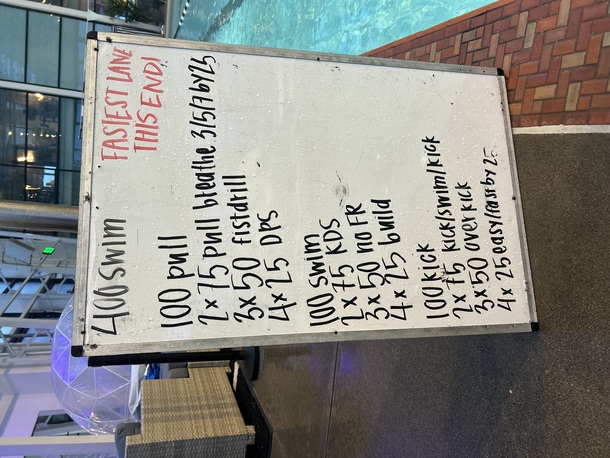 400 swim
FASTEST LANE
THIS END!
100 pull
2x75 pull breathe 3/5/7 by 25
3x50 fistdrill
4x25 DPS
100 swim
2x75 KDS
3x50 no FR
4x25 build
100 kick
2x75 kick/swim/kick
3x50 overkick
4x25 easy/fast by 25